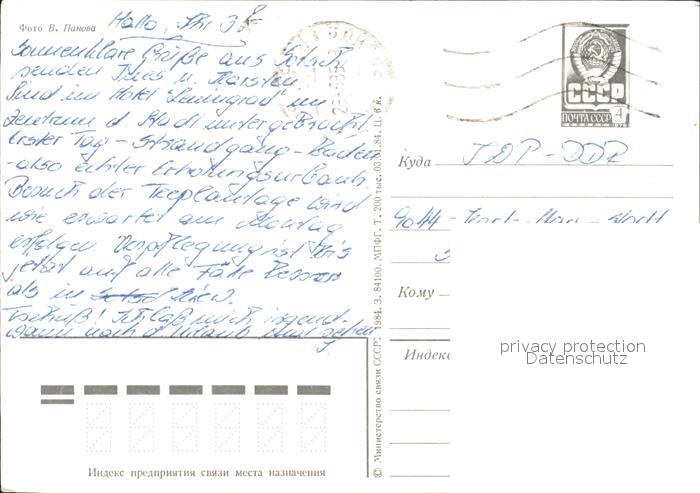 Фото В. Панова
Hallo, Ihr 3!
Sonnenklare Grüße aus Sotschi
senden Ines u. Karsten.
Sind im Hotel "Leningrad" im
Zentrum d. Stadt untergebracht.
Erster Tag - Strandgang - Baden
- also echter Erholungsurlaub.
Besuch der Teeplantage wird
wie erwartet am Montag
erfolgen. Verpflegung ist bis
jetzt auf alle Fälle besser
als in Kiew.
Tschüß! Laß mich irgend-
wann nach d. Urlaub mal sehen
Индекс предприятия связи места назначения
© Министерство связи СССР. 1984. З. 84100. МПФГ. Т. 200 тыс. 03.01.84. Ц. 8 к.
СССР
ПОЧТА СССР
4
Куда ГДР - DDR
9044 - Karl - Marx - Stadt
Кому
Индекс
privacy protection
Datenschutz